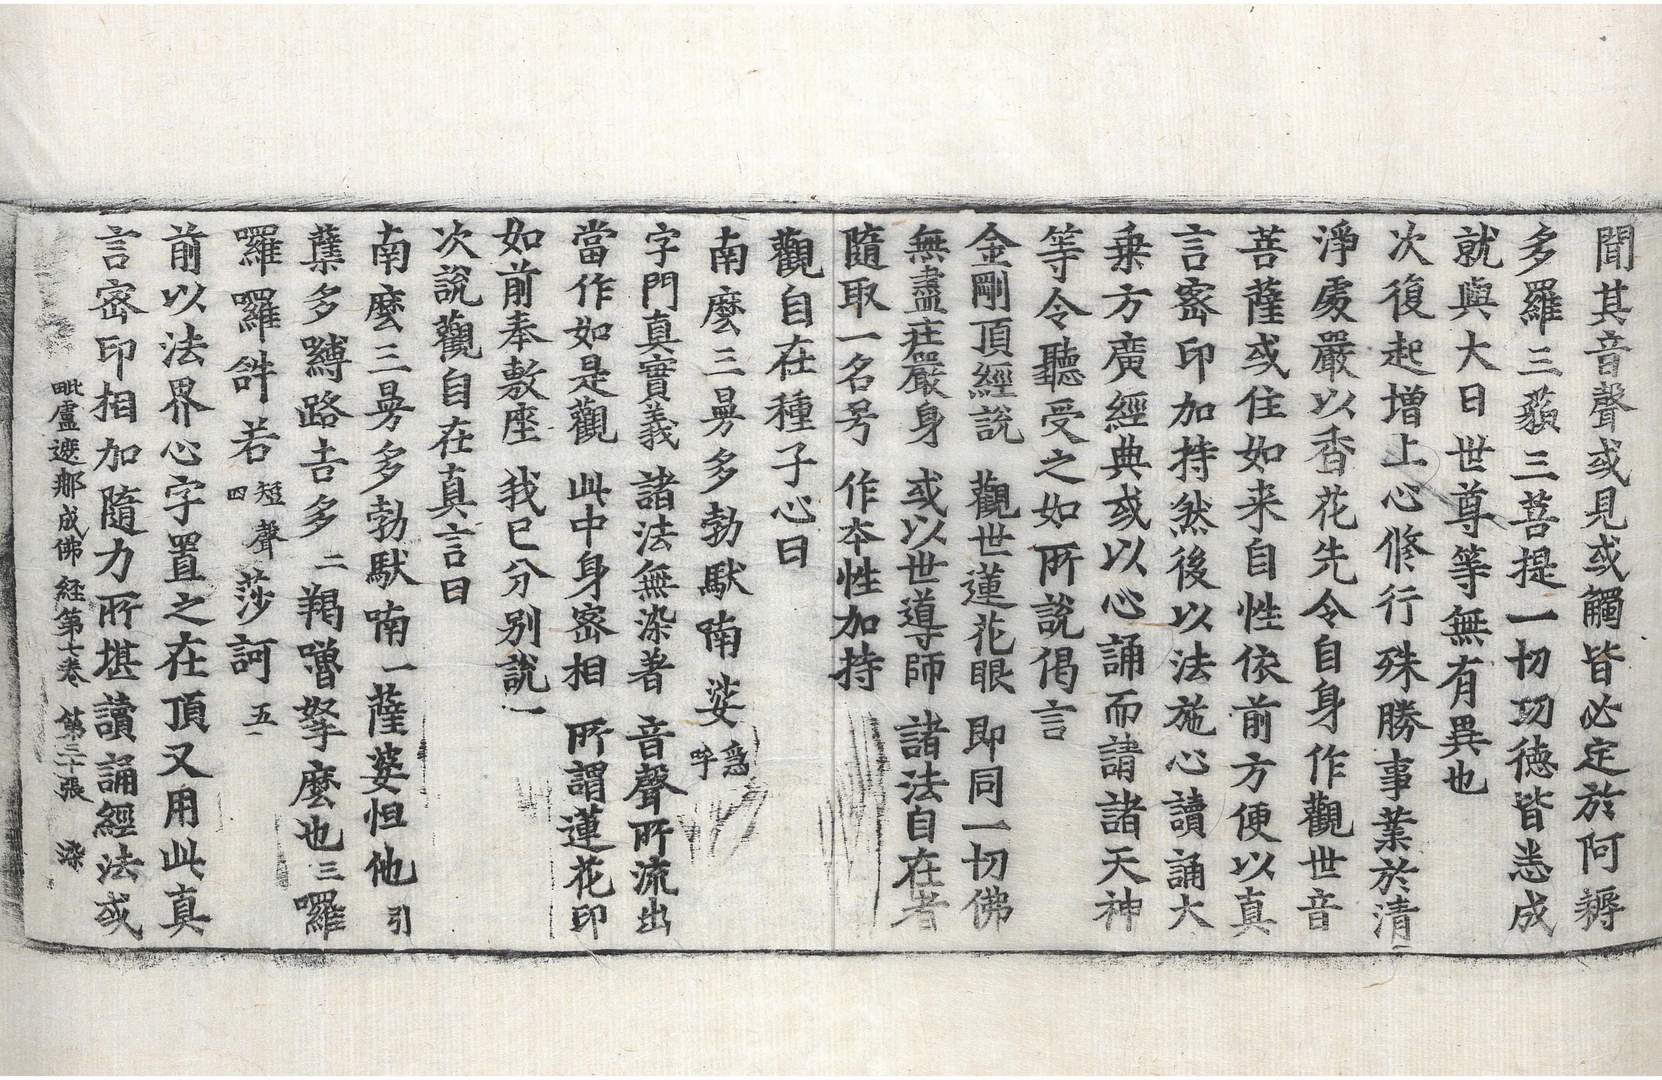 聞其音聲或見或觸皆必定於阿耨
多羅三藐三菩提一切功德皆悉成
就與大日世尊等無有異也
次復起增上心修行殊勝事業於清
淨處嚴以香花先令自身作觀世音
菩薩或住如来自性依前方便以真
言密印加持然後以法施心讀誦大
乗方廣經典或以心誦而請諸天神
等令聽受之如所說偈言
金剛頂經說　觀世蓮花眼　即同一切佛
無盡莊嚴身　或以世導師　諸法自在者
隨取一名号　作本性加持
觀自在種子心曰
南麼三曼多勃馱喃娑急呼
字門真實義　諸法無染著　音聲所流出
當作如是觀　此中身密相　所謂蓮花印
如前奉敷座　我已分別說一
次說觀自在真言曰
南麼三曼多勃馱喃一薩婆怛他引
蘖多嚩路吉多二羯嚕拏麼也三囉
囉囉𤙖若短聲四莎訶五
前以法界心字置之在頂又用此真
言密印相加隨力所堪讀誦經法或
毗盧遮那成佛経第七卷　第三十張　染